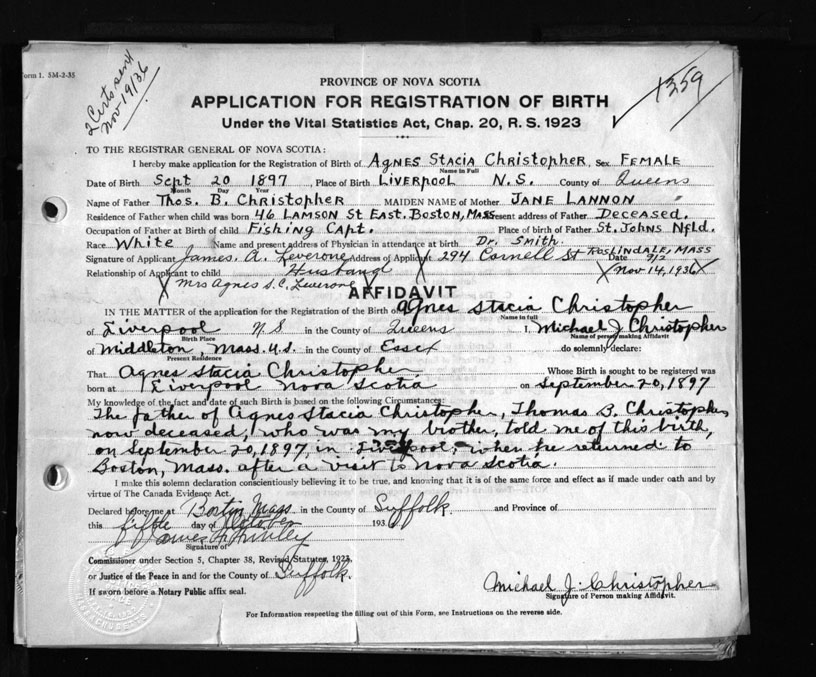 Form 1. 5M-2-35
2 Certs sent
Nov 19/36
1359
PROVINCE OF NOVA SCOTIA
APPLICATION FOR REGISTRATION OF BIRTH
Under the Vital Statistics Act, Chap. 20, R. S. 1923
TO THE REGISTRAR GENERAL OF NOVA SCOTIA:
I hereby make application for the Registration of Birth of AGNES STACIA CHRISTOPHER, Sex FEMALE
Name in Full
Date of Birth Sept 20 1897, Place of Birth LIVERPOOL N.S. County of Queens
Month Day Year
Name of Father Thos. B. Christopher MAIDEN NAME of Mother JANE LANNON
Residence of Father when child was born 46 LAMSON St EAST. BOSTON, MASS present address of Father DECEASED.
Occupation of Father at Birth of child FISHING CAPT. Place of birth of Father ST. JOHNS Nfld.
Race White Name and present address of Physician in attendance at birth Dr. Smith.
Signature of Applicant James. A. Leverone Address of Applicant 294 Cornell St ROSLINDALE, MASS
Date
Relationship of Applicant to child Husband X Nov 14, 1936 X
X Mrs Agnes S. C. Leverone X
AFFIDAVIT
IN THE MATTER of the application for the Registration of the Birth of Agnes Stacia Christopher
Name in full
of Liverpool N S in the County of Queens I, Michael J Christopher
Birth Place Name of person making Affidavit
of Middleton Mass. U.S. in the County of Essex do solemnly declare:
Present Residence
That Agnes Stacia Christopher Whose Birth is sought to be registered was
born at Liverpool Nova Scotia on September 20, 1897
My knowledge of the fact and date of such Birth is based on the following Circumstances:
The father of Agnes Stacia Christopher, Thomas B. Christopher,
now deceased, who was my brother, told me of this birth,
on September 20, 1897, in Liverpool, when he returned to
Boston, Mass. after a visit to Nova Scotia.
I make this solemn declaration conscientiously believing it to be true, and knowing that it is of the same force and effect as if made under oath and by
virtue of The Canada Evidence Act.
Declared before me at Boston Mass in the County of Suffolk. and Province of
this fifth day of October 1936
Signature of
Commissioner under Section 5, Chapter 38, Revised Statutes, 1923,
or Justice of the Peace in and for the County of Suffolk.
If sworn before a Notary Public affix seal.
Michael J. Christopher
Signature of Person making Affidavit.
For Information respecting the filling out of this Form, see Instructions on the reverse side.